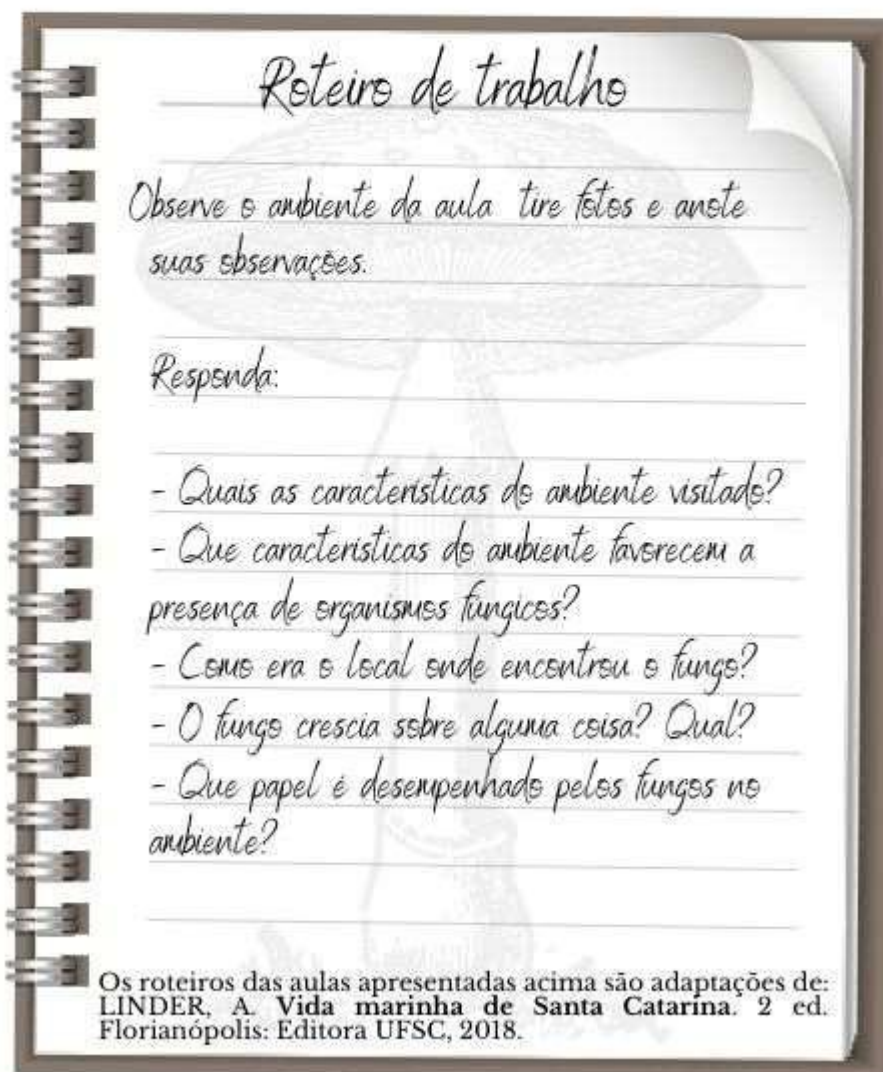 Roteiro de trabalho
Observe o ambiente da aula tire fotos e anote
suas observações.
Responda:
- Quais as características do ambiente visitado?
- Que características do ambiente favorecem a
presença de organismos fúngicos?
- Como era o local onde encontrou o fungo?
- O fungo crescia sobre alguma coisa? Qual?
- Que papel é desempenhado pelos fungos no
ambiente?
Os roteiros das aulas apresentadas acima são adaptações de:
LINDER, A. Vida marinha de Santa Catarina. 2 ed.
Florianópolis: Editora UFSC, 2018.